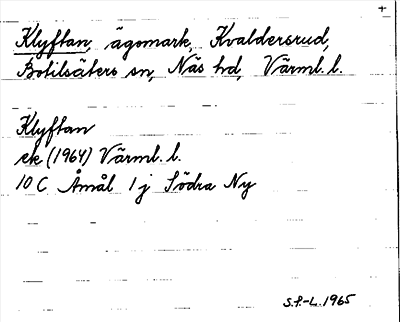 +
Klyftan, ägomark, Kvaldersrud,
Botilsäters sn, Näs hd, Värml. l.
Klyftan
ek (1964) Värml. l.
10 C Åmål 1 j Södra Ny
S.P.-L. 1965